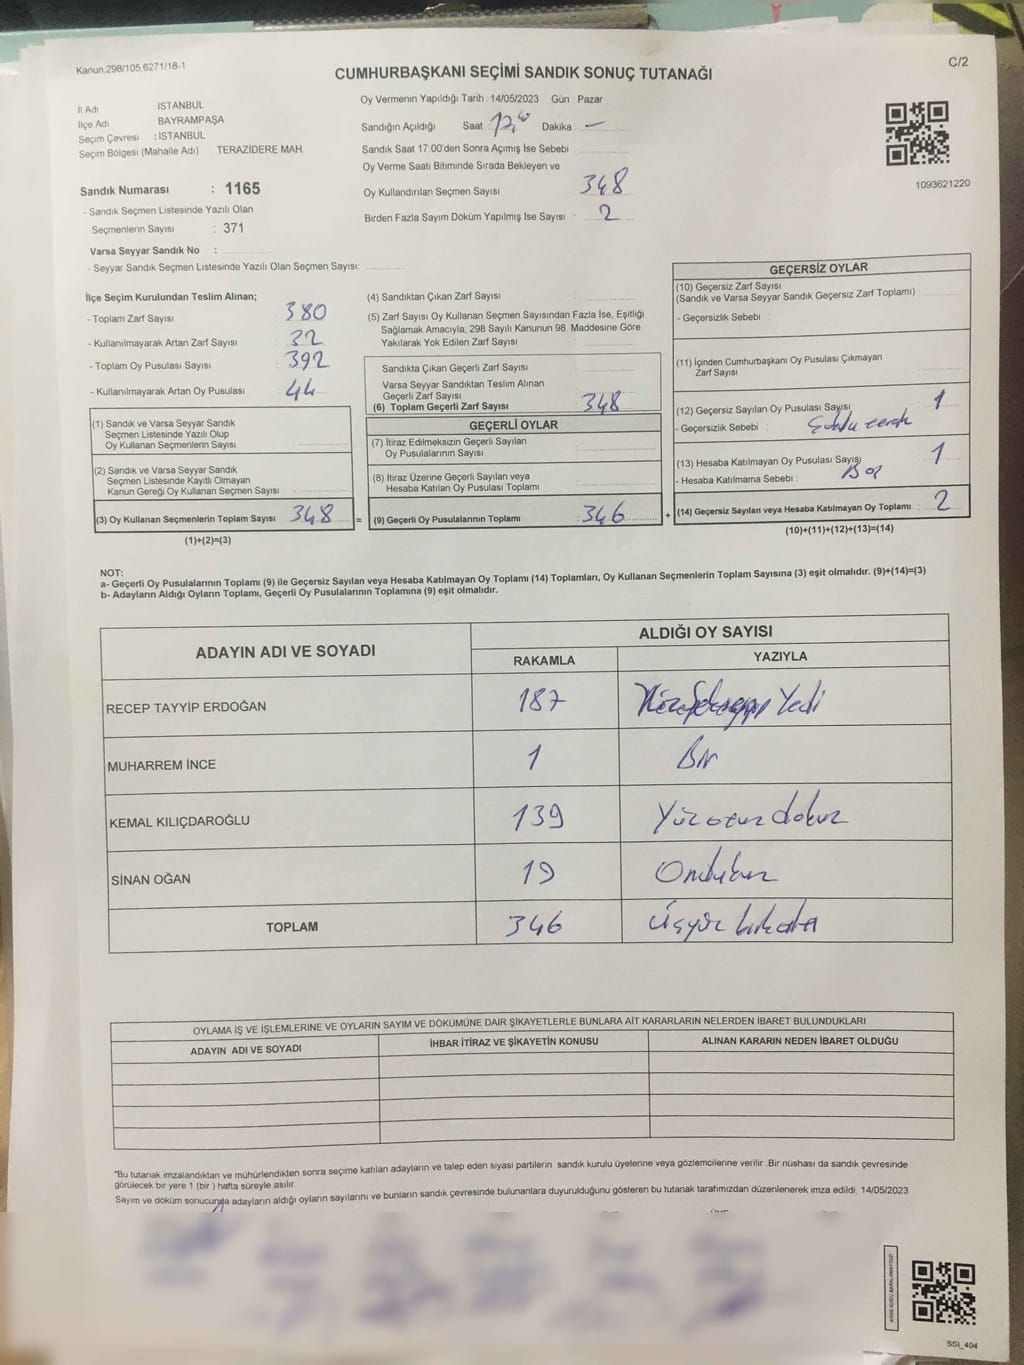 Kanun.298/105,6271/18-1
C/2
CUMHURBAŞKANI SEÇİMİ SANDIK SONUÇ TUTANAĞI
İl Adı İSTANBUL
İlçe Adı BAYRAMPAŞA
Seçim Çevresi : İSTANBUL
Seçim Bölgesi (Mahalle Adı) TERAZİDERE MAH.
Sandık Numarası : 1165
- Sandık Seçmen Listesinde Yazılı Olan
Seçmenlerin Sayısı : 371
Varsa Seyyar Sandık No :
- Seyyar Sandık Seçmen Listesinde Yazılı Olan Seçmen Sayısı:
Oy Vermenin Yapıldığı Tarih : 14/05/2023 Gün : Pazar
Sandığın Açıldığı Saat : Dakika : —
Sandık Saat 17:00'den Sonra Açımış İse Sebebi
Oy Verme Saati Bitiminde Sırada Bekleyen ve
Oy Kullandırılan Seçmen Sayısı 348
Birden Fazla Sayım Döküm Yapılmış İse Sayısı : 2
1093621220
İlçe Seçim Kurulundan Teslim Alınan;
- Toplam Zarf Sayısı : 380
- Kullanılmayarak Artan Zarf Sayısı : 32
- Toplam Oy Pusulası Sayısı : 392
- Kullanılmayarak Artan Oy Pusulası : 44
(1) Sandık ve Varsa Seyyar Sandık
Seçmen Listesinde Yazılı Olup
Oy Kullanan Seçmenlerin Sayısı :
(2) Sandık ve Varsa Seyyar Sandık
Seçmen Listesinde Kayıtlı Olmayan
Kanun Gereği Oy Kullanan Seçmen Sayısı :
(3) Oy Kullanan Seçmenlerin Toplam Sayısı 348 =
(1)+(2)=(3)
(4) Sandıktan Çıkan Zarf Sayısı :
(5) Zarf Sayısı Oy Kullanan Seçmen Sayısından Fazla İse, Eşitliği
Sağlamak Amacıyla; 298 Sayılı Kanunun 98. Maddesine Göre
Yakılarak Yok Edilen Zarf Sayısı :
Sandıkta Çıkan Geçerli Zarf Sayısı :
Varsa Seyyar Sandıktan Teslim Alınan
Geçerli Zarf Sayısı
(6) Toplam Geçerli Zarf Sayısı : 348
GEÇERLİ OYLAR
(7) İtiraz Edilmeksizin Geçerli Sayılan
Oy Pusulalarının Sayısı :
(8) İtiraz Üzerine Geçerli Sayılan veya
Hesaba Katılan Oy Pusulası Toplamı :
(9) Geçerli Oy Pusulalarının Toplamı : 346 +
GEÇERSİZ OYLAR
(10) Geçersiz Zarf Sayısı
(Sandık ve Varsa Seyyar Sandık Geçersiz Zarf Toplamı) :
- Geçersizlik Sebebi :
(11) İçinden Cumhurbaşkanı Oy Pusulası Çıkmayan
Zarf Sayısı :
(12) Geçersiz Sayılan Oy Pusulası Sayısı 1
- Geçersizlik Sebebi :
(13) Hesaba Katılmayan Oy Pusulası Sayısı 1
- Hesaba Katılmama Sebebi :
(14) Geçersiz Sayılan veya Hesaba Katılmayan Oy Toplamı : 2
(10)+(11)+(12)+(13)=(14)
NOT:
a- Geçerli Oy Pusulalarının Toplamı (9) ile Geçersiz Sayılan veya Hesaba Katılmayan Oy Toplamı (14) Toplamları, Oy Kullanan Seçmenlerin Toplam Sayısına (3) eşit olmalıdır. (9)+(14)=(3)
b- Adayların Aldığı Oyların Toplamı, Geçerli Oy Pusulalarının Toplamına (9) eşit olmalıdır.
ADAYIN ADI VE SOYADI
ALDIĞI OY SAYISI
RAKAMLA YAZIYLA
RECEP TAYYİP ERDOĞAN 187 Yedi
MUHARREM İNCE 1 Bir
KEMAL KILIÇDAROĞLU 139 Yüz otuz dokuz
SİNAN OĞAN 19 Ondokuz
TOPLAM 346 Üçyüz kırkaltı
OYLAMA İŞ VE İŞLEMLERİNE VE OYLARIN SAYIM VE DÖKÜMÜNE DAİR ŞİKAYETLERLE BUNLARA AİT KARARLARIN NELERDEN İBARET BULUNDUKLARI
ADAYIN ADI VE SOYADI İHBAR İTİRAZ VE ŞİKAYETİN KONUSU ALINAN KARARIN NEDEN İBARET OLDUĞU
*Bu tutanak imzalandıktan ve mühürlendikten sonra seçime katılan adayların ve talep eden siyasi partilerin sandık kurulu üyelerine veya gözlemcilerine verilir .Bir nüshası da sandık çevresinde
görülecek bir yere 1 (bir ) hafta süreyle asılır.
Sayım ve döküm sonucunda adayların aldığı oyların sayılarını ve bunların sandık çevresinde bulunanlara duyurulduğunu gösteren bu tutanak tarafımızdan düzenlenerek imza edildi. 14/05/2023
SSI_404